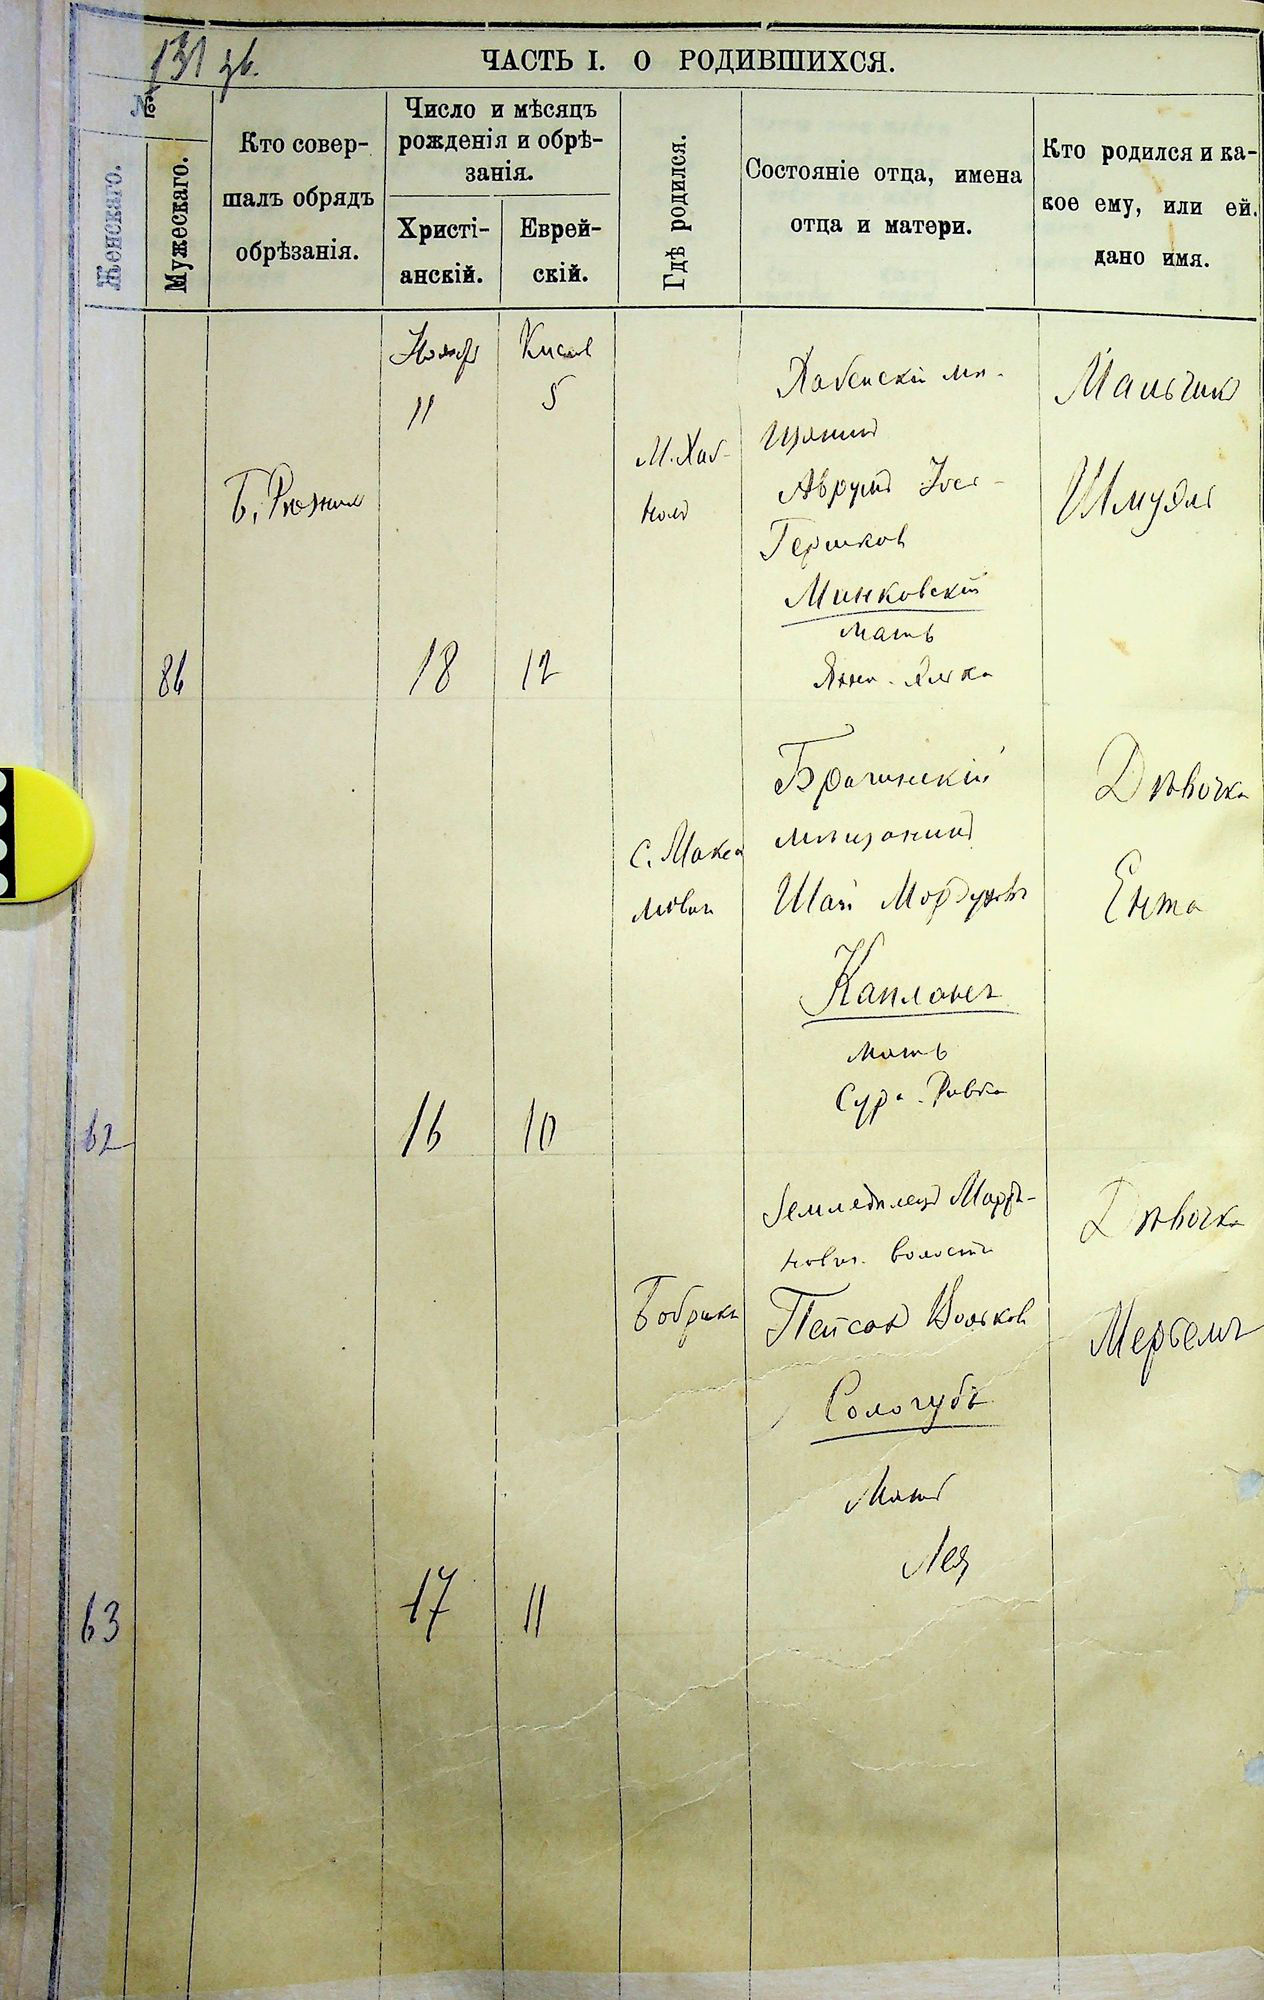 131 зв.
ЧАСТЬ I. О РОДИВШИХСЯ.
№
Женскаго.
Мужескаго.
Кто совер-
шалъ обрядъ
обрѣзанія.
Число и мѣсяцъ
рожденія и обрѣ-
занія.
Христі-
анскій.
Еврей-
скій.
Гдѣ родился.
Состояніе отца, имена
отца и матери.
Кто родился и ка-
кое ему, или ей.
дано имя.
86
Б.
Ноябр
11
18
Кислев
5
12
М. Хаб-
ное
Хабенскій мѣ-
щанинъ
Аврумъ Іось-
Гершков
Минковскій
мать
Мальчикъ
Шмуэль
62
16
10
С. Макса
мович
Брагинскій
мѣщанинъ
Шай Мордухов
Капланъ
мать
Сура-Ривка
Дѣвочка
Ента
63
17
11
Бобрик
Земледѣлецъ Марты-
нович. волости
Пейсах Вольков
Сологубъ
Мать
Лея
Дѣвочка
Мерьемъ